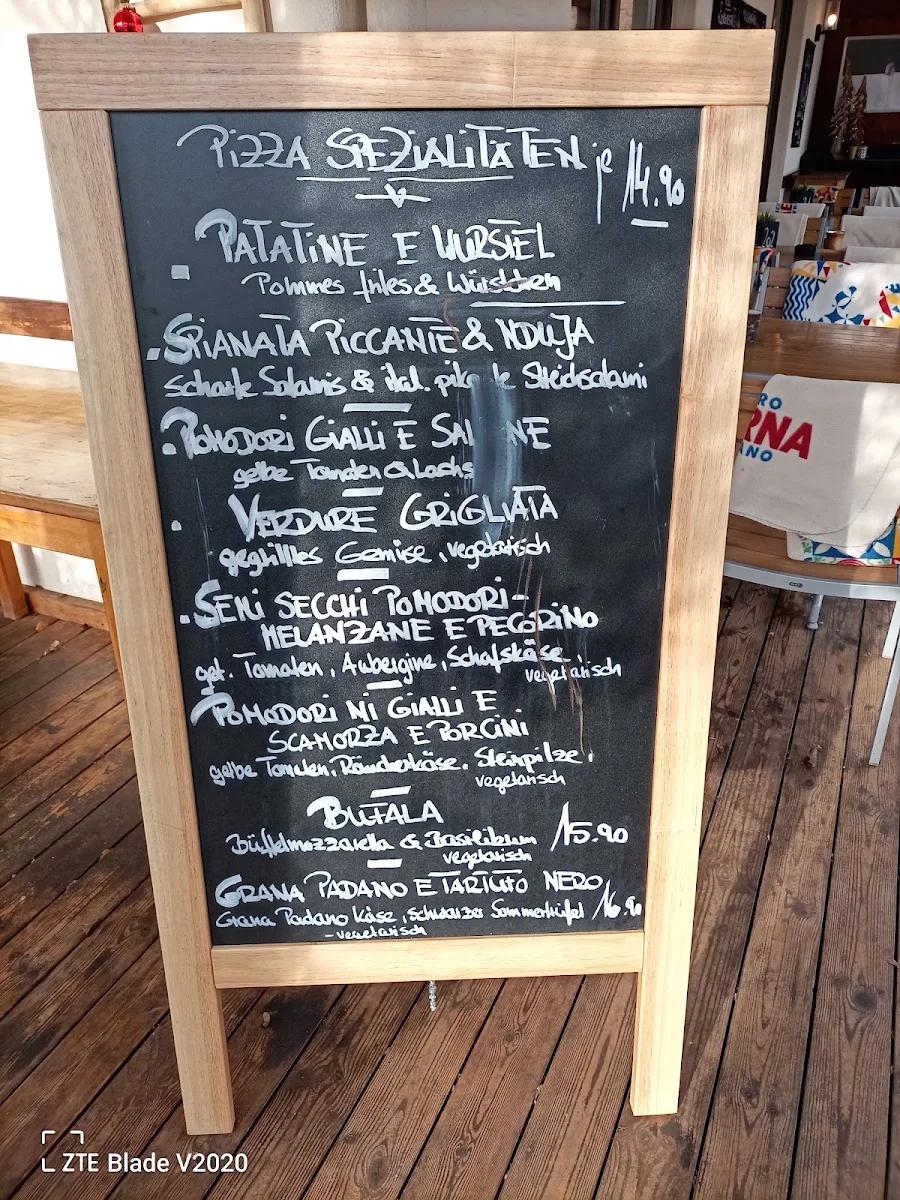 PIZZA SPEZIALITÄTEN je 14.90
PATATINE E WURSTEL
Pommes frites & Würstchen
SPIANATA PICCANTE & NDUJA
scharfe Salamis & ital. Steichsalami
POMODORI GIALLI E
gelbe Tomaten & Lachs
VERDURE GRIGLIATA
gegrilltes Gemüse, vegetarisch
SEMI SECCHI POMODORI-
MELANZANE E PECORINO
get. Tomaten, Aubergine, Schafskäse
vegetarisch
POMODORI NI GIALLI E
SCAMORZA E PORCINI
gelbe Tomaten, Räucherkäse, Steinpilze,
vegetarisch
BUFALA
Büffelmozzarella & Basilikum 15.90
vegetarisch
GRANA PADANO E TARTUFO NERO
Grana Padano Käse, schwarzer Sommertrüfel 16.90
-vegetarisch
RO
RNA
ANO
ZTE Blade V2020